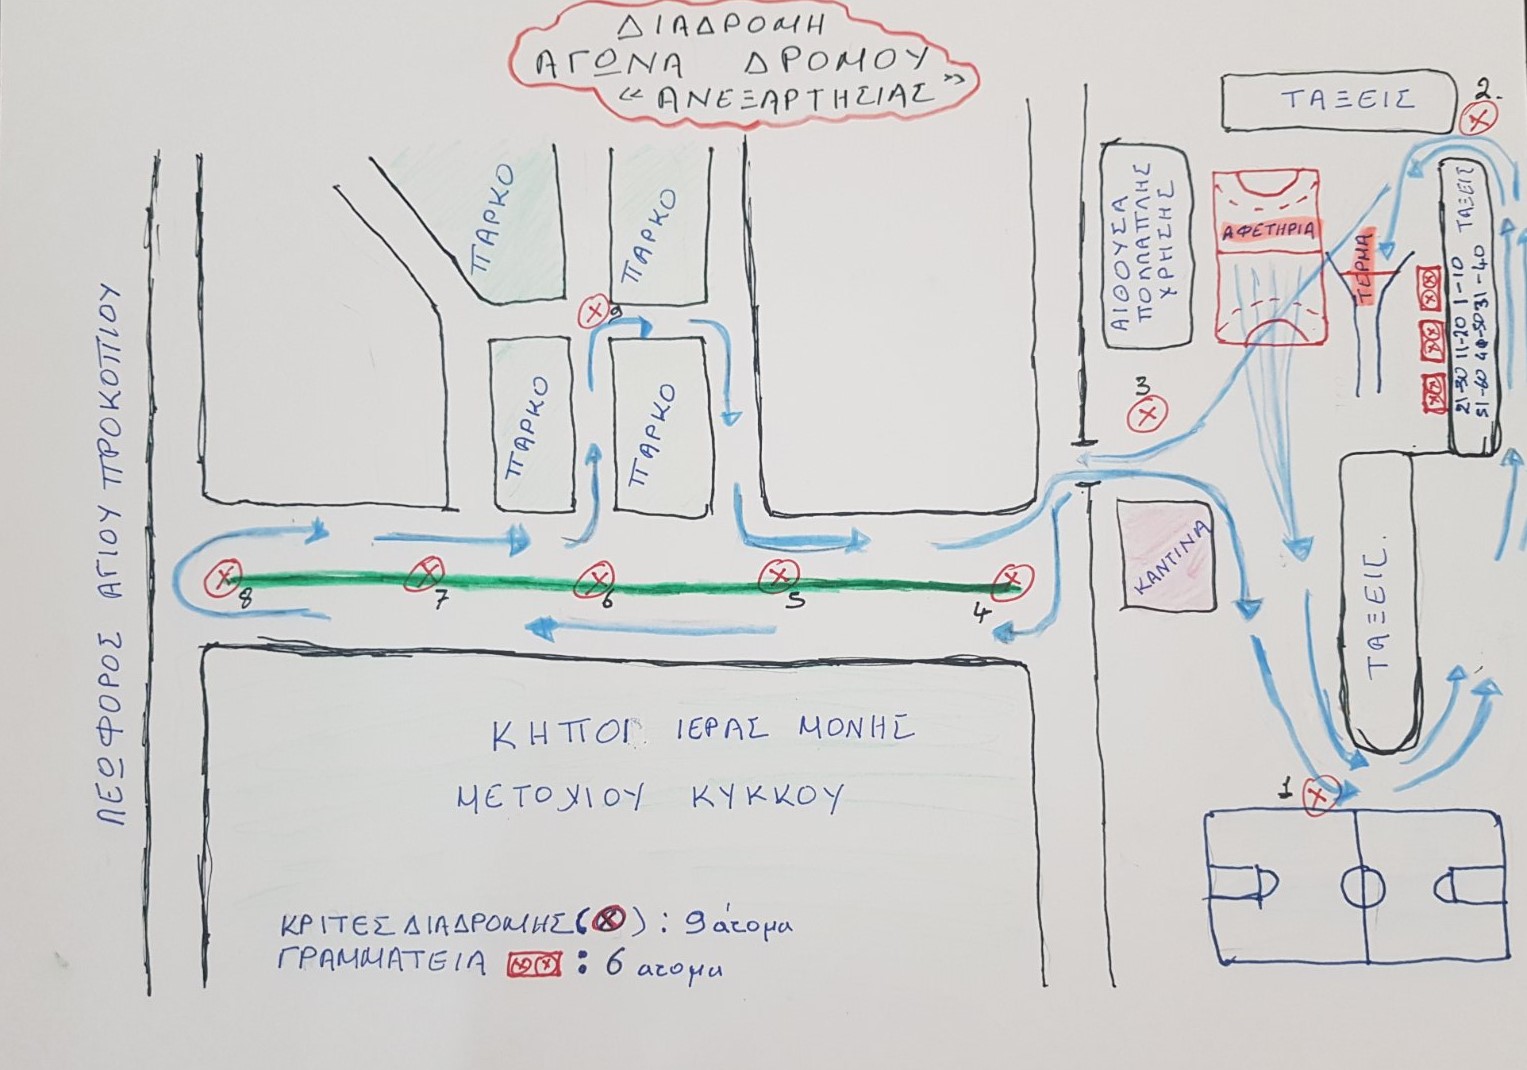 ΔΙΑΔΡΟΜΗ
ΑΓΩΝΑ ΔΡΟΜΟΥ
“ΑΝΕΞΑΡΤΗΣΙΑΣ”
ΤΑΞΕΙΣ
2.
ΠΑΡΚΟ
ΠΑΡΚΟ
ΑΙΘΟΥΣΑ
ΠΟΛΛΑΠΛΗΣ
ΧΡΗΣΗΣ
ΑΦΕΤΗΡΙΑ
ΤΕΡΜΑ
ΤΑΞΕΙΣ
21-30 11-20 1-10
51-60 41-50 31-40
9
ΠΑΡΚΟ
ΠΑΡΚΟ
3
ΛΕΩΦΟΡΟΣ ΑΓΙΟΥ ΠΡΟΚΟΠΙΟΥ
ΚΑΝΤΙΝΑ
ΤΑΞΕΙΣ.
8
7
6
5
4
ΚΗΠΟΙ ΙΕΡΑΣ ΜΟΝΗΣ
ΜΕΤΟΧΙΟΥ ΚΥΚΚΟΥ
1
ΚΡΙΤΕΣ ΔΙΑΔΡΟΜΗΣ (⊗) : 9 άτομα
ΓΡΑΜΜΑΤΕΙΑ ⊗⊗ : 6 ατομα